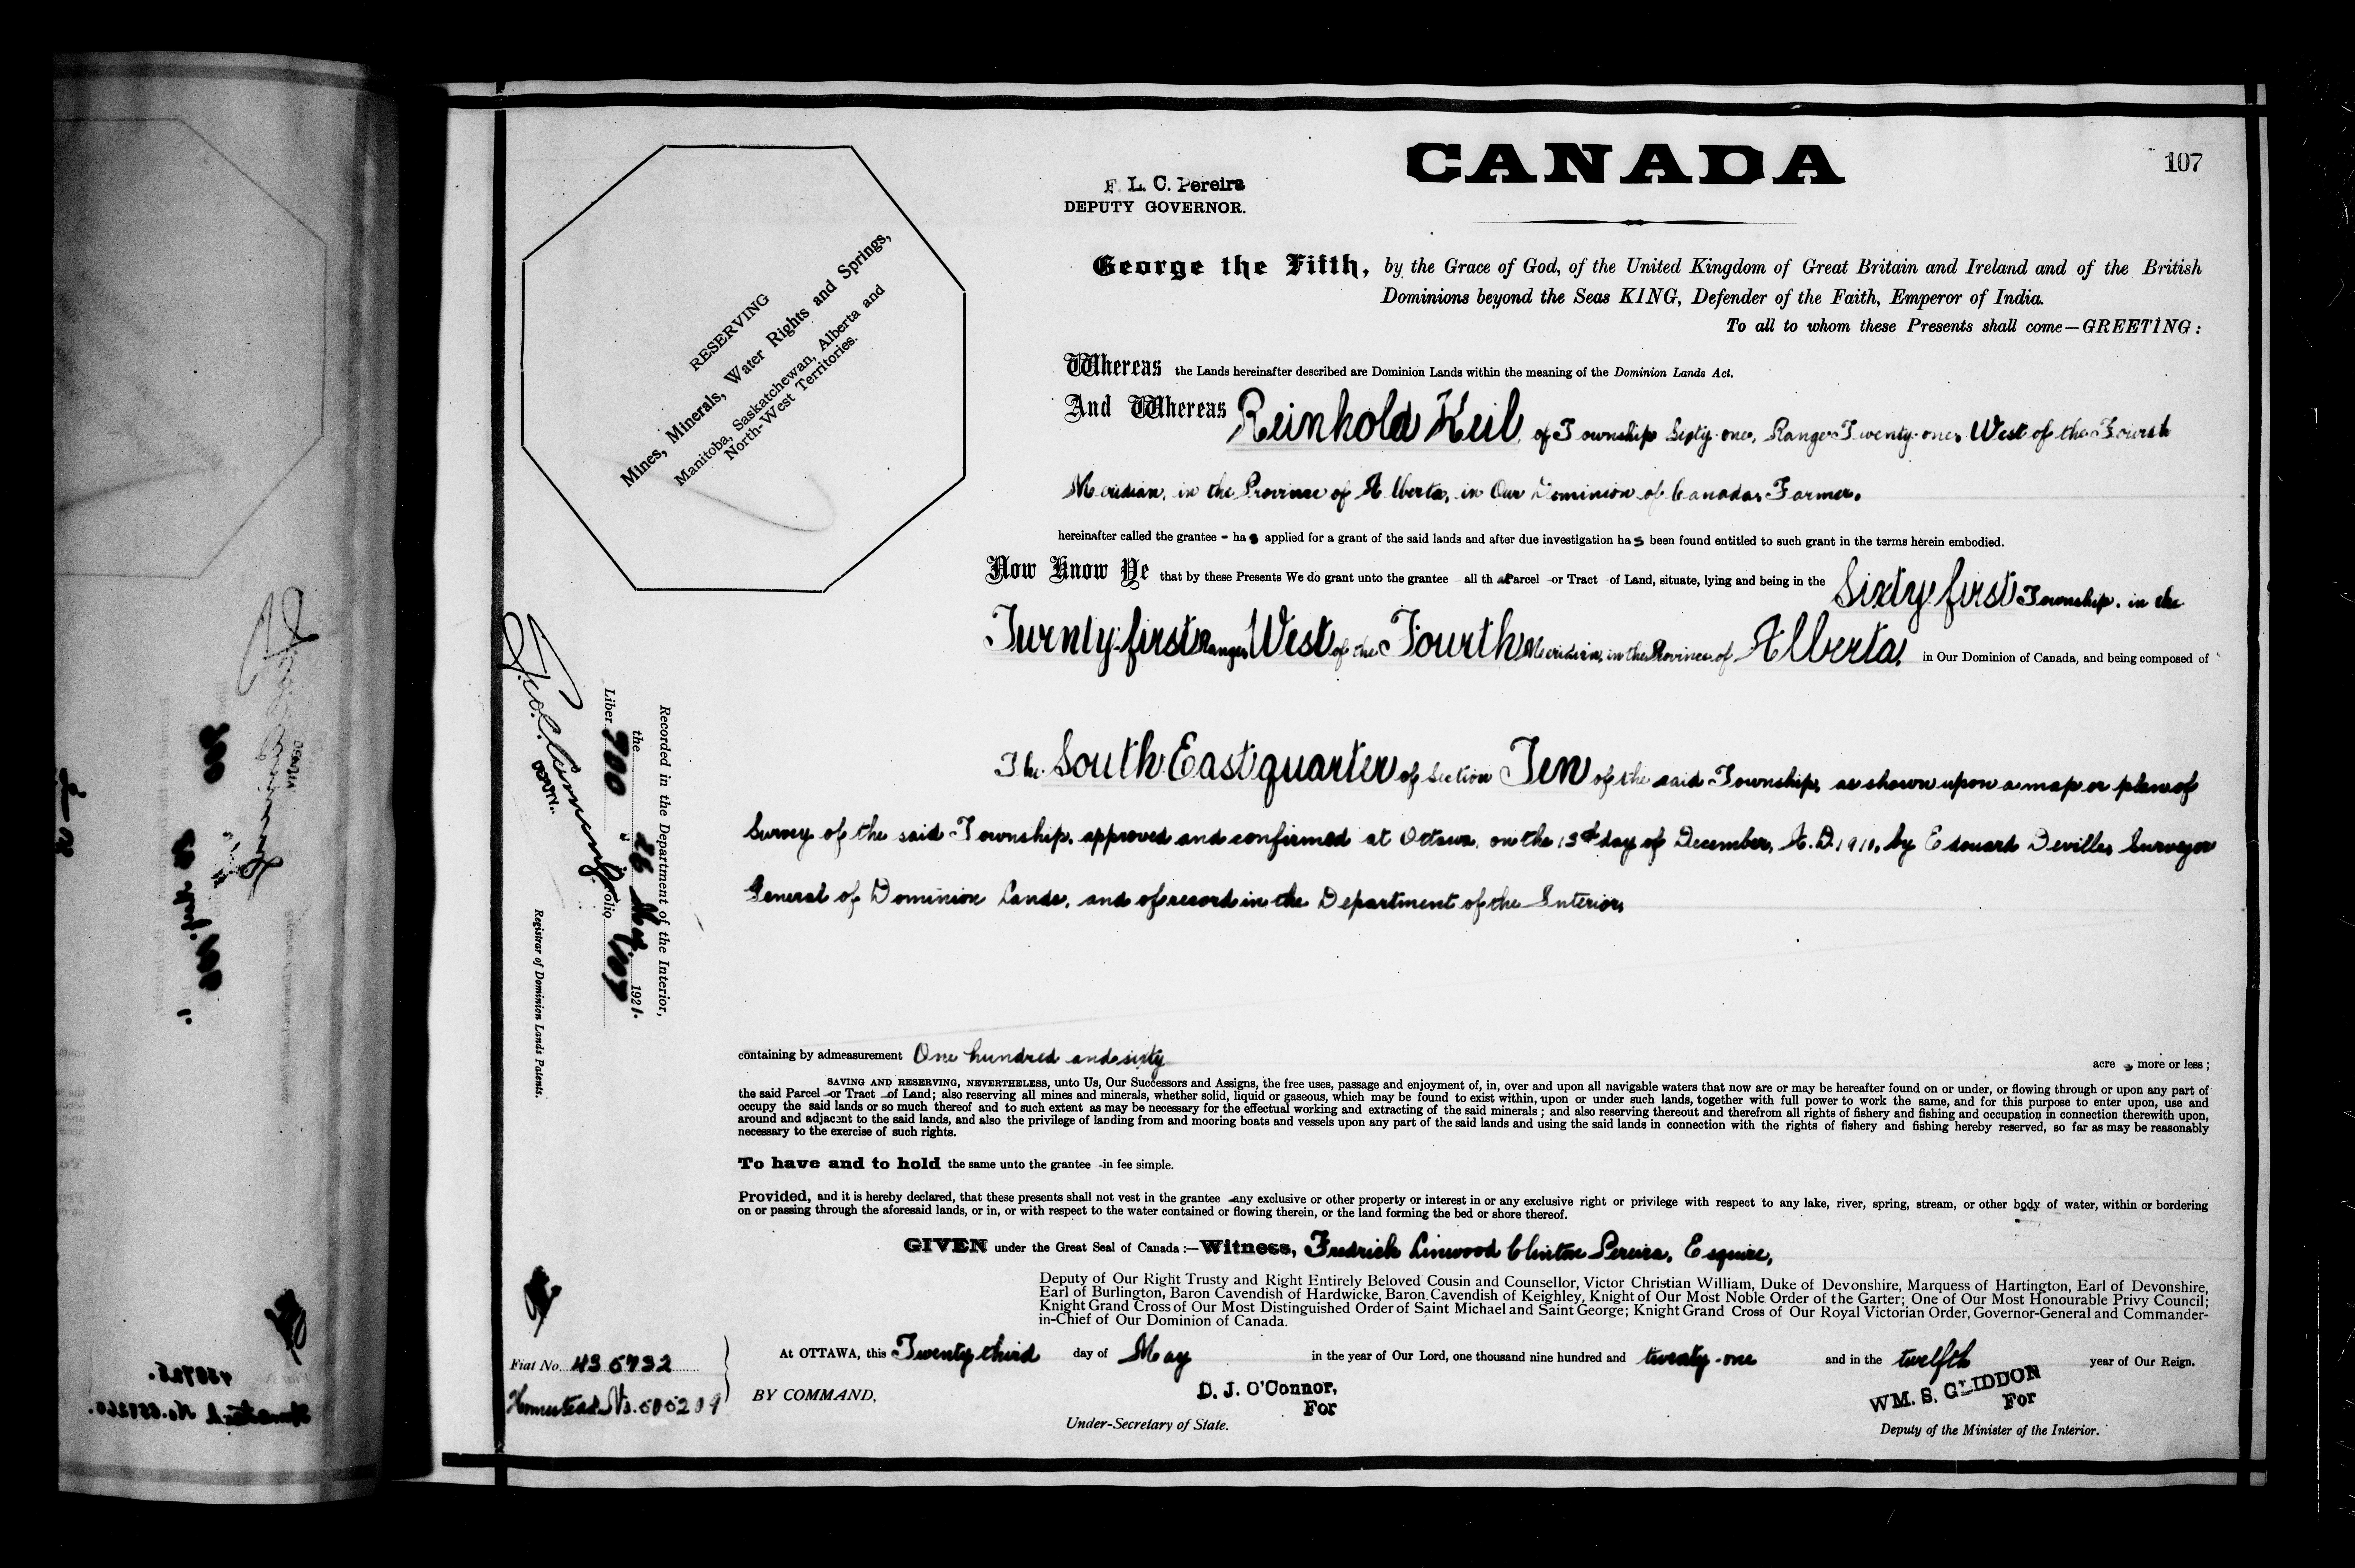 CANADA
107
F. L. C. Pereira
DEPUTY GOVERNOR.
George the Fifth, by the Grace of God, of the United Kingdom of Great Britain and Ireland and of the British
Dominions beyond the Seas KING, Defender of the Faith, Emperor of India.
To all to whom these Presents shall come—GREETING:
RESERVING
Mines, Minerals, Water Rights and Springs,
Manitoba, Saskatchewan, Alberta and
North-West Territories.
Whereas the Lands hereinafter described are Dominion Lands within the meaning of the Dominion Lands Act.
And Whereas Reinhold Keil, of Township Sixty-one, Range Twenty-one, West of the Fourth
Meridian, in the Province of Alberta, in Our Dominion of Canada, Farmer,
hereinafter called the grantee - has applied for a grant of the said lands and after due investigation has been found entitled to such grant in the terms herein embodied.
Now Know Ye that by these Presents We do grant unto the grantee all that Parcel or Tract of Land, situate, lying and being in the Sixty-first Township, in the
Twenty-first Range, West of the Fourth Meridian, in the Province of Alberta, in Our Dominion of Canada, and being composed of
The South East quarter of Section Ten of the said Township, as shown upon a map or plan of
Survey of the said Township, approved and confirmed at Ottawa, on the 13th day of December, A.D. 1910, by Edouard Deville, Surveyor
General of Dominion Lands, and of record in the Department of the Interior,
Recorded in the Department of the Interior,
the 26 May 1921.
Liber 700 Folio 107
DEPUTY.
Registrar of Dominion Lands Patents.
containing by admeasurement One hundred and sixty acres more or less;
SAVING AND RESERVING, NEVERTHELESS, unto Us, Our Successors and Assigns, the free uses, passage and enjoyment of, in, over and upon all navigable waters that now are or may be hereafter found on or under, or flowing through or upon any part of
the said Parcel or Tract of Land; also reserving all mines and minerals, whether solid, liquid or gaseous, which may be found to exist within, upon or under such lands, together with full power to work the same, and for this purpose to enter upon, use and
occupy the said lands or so much thereof and to such extent as may be necessary for the effectual working and extracting of the said minerals; and also reserving thereout and therefrom all rights of fishery and fishing and occupation in connection therewith upon,
around and adjacent to the said lands, and also the privilege of landing from and mooring boats and vessels upon any part of the said lands and using the said lands in connection with the rights of fishery and fishing hereby reserved, so far as may be reasonably
necessary to the exercise of such rights.
To have and to hold the same unto the grantee in fee simple.
Provided, and it is hereby declared, that these presents shall not vest in the grantee any exclusive or other property or interest in or any exclusive right or privilege with respect to any lake, river, spring, stream, or other body of water, within or bordering
on or passing through the aforesaid lands, or in, or with respect to the water contained or flowing therein, or the land forming the bed or shore thereof.
GIVEN under the Great Seal of Canada:—Witness, Fredrick Linwood Clinton Pereira, Esquire,
Deputy of Our Right Trusty and Right Entirely Beloved Cousin and Counsellor, Victor Christian William, Duke of Devonshire, Marquess of Hartington, Earl of Devonshire,
Earl of Burlington, Baron Cavendish of Hardwicke, Baron Cavendish of Keighley, Knight of Our Most Noble Order of the Garter; One of Our Most Honourable Privy Council;
Knight Grand Cross of Our Most Distinguished Order of Saint Michael and Saint George; Knight Grand Cross of Our Royal Victorian Order, Governor-General and Commander-
in-Chief of Our Dominion of Canada.
At OTTAWA, this Twenty third day of May in the year of Our Lord, one thousand nine hundred and twenty-one and in the twelfth year of Our Reign.
Fiat No. 435732
Homestead No. 505209
BY COMMAND,
D. J. O'Connor,
For
Under-Secretary of State.
WM. S. GLIDDON
For
Deputy of the Minister of the Interior.